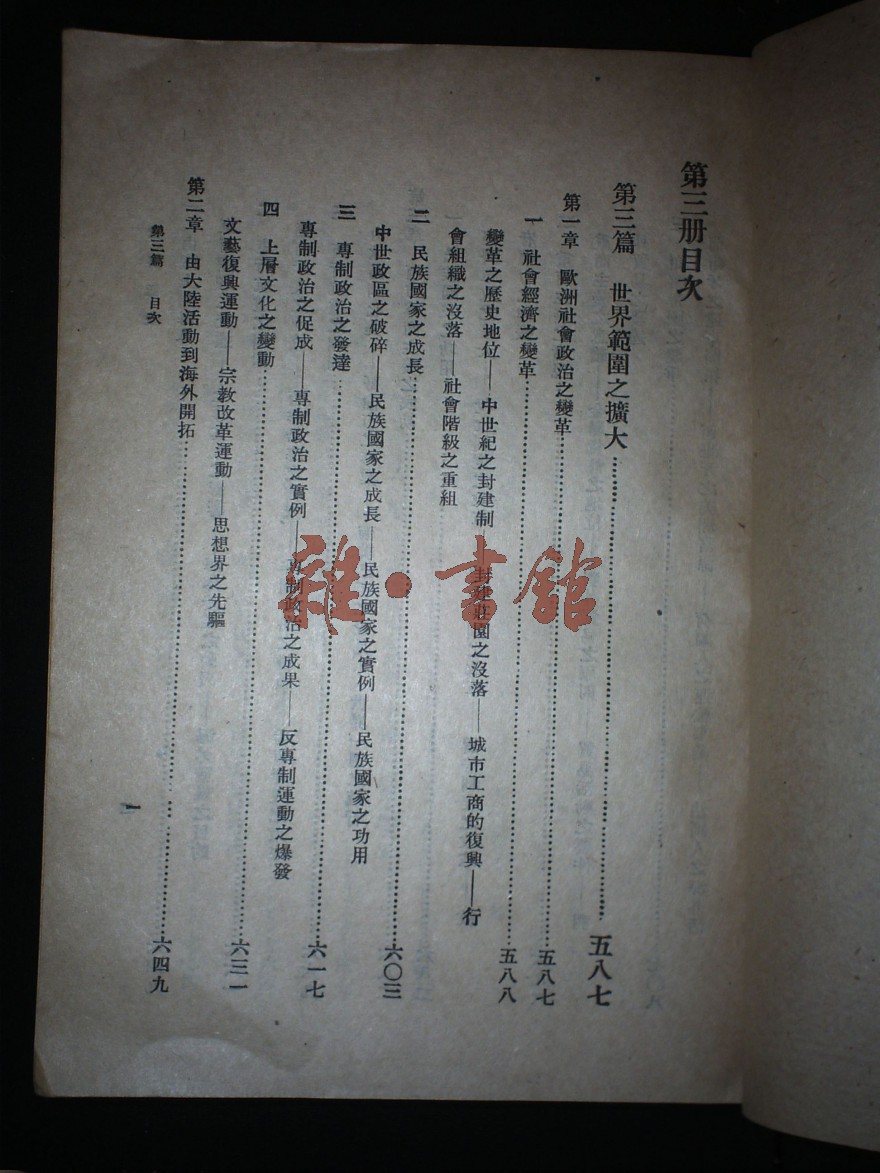 第三册目次
第三篇　世界範圍之擴大……五八七
第一章　歐洲社會政治之變革……五八七
一　社會經濟之變革……五八八
變革之歷史地位——中世紀之封建制——封建莊園之沒落——城市工商的復興——行
會組織之沒落——社會階級之重組
二　民族國家之成長……六〇三
中世政區之破碎——民族國家之成長——民族國家之實例——民族國家之功用
三　專制政治之發達……六一七
專制政治之促成——專制政治之實例——專制政治之成果——反專制運動之爆發
四　上層文化之變動……六三一
文藝復興運動——宗教改革運動——思想界之先驅
第二章　由大陸活動到海外開拓……六四九
第三篇　目次
一
雜·書館